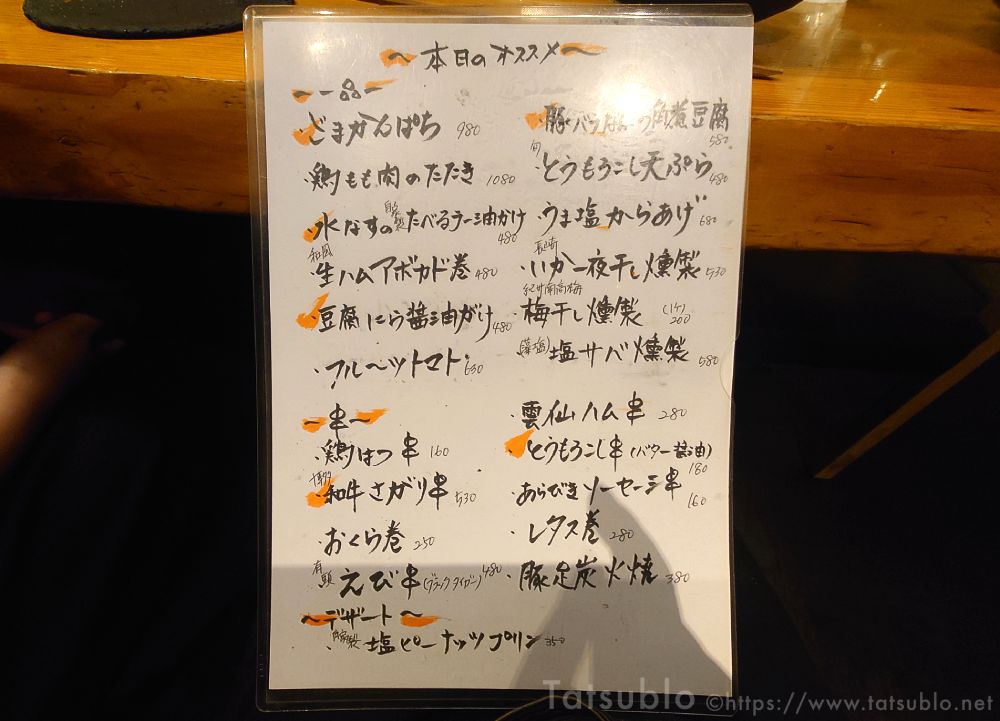 ～本日のオススメ～
～一品～
・ごまかんぱち 980
・鶏もも肉のたたき 1080
・水なすの自家製たべるラー油かけ 480
和風
・生ハムアボカド巻 480
・豆腐にら醤油がけ 480
・フルーツトマト 630
・豚バラ 角煮豆腐 580
旬
・とうもろこし天ぷら 480
・うま塩からあげ 680
長崎
・いか一夜干し燻製 530
紀州南高梅
・梅干し燻製 (1ケ) 200
(藻塩)塩サバ燻製 580
～串～
・鶏はつ串 160
博多
・和牛さがり串 530
・おくら巻 250
有頭
・えび串(ブラックタイガー) 480
・雲仙ハム串 280
・とうもろこし串(バター醤油) 180
・あらびきソーセージ串 160
・レタス巻 280
・豚足炭火焼 380
～デザート～
・自家製 塩ピーナッツプリン 350
Tatsublo ©https://www.tatsublo.net